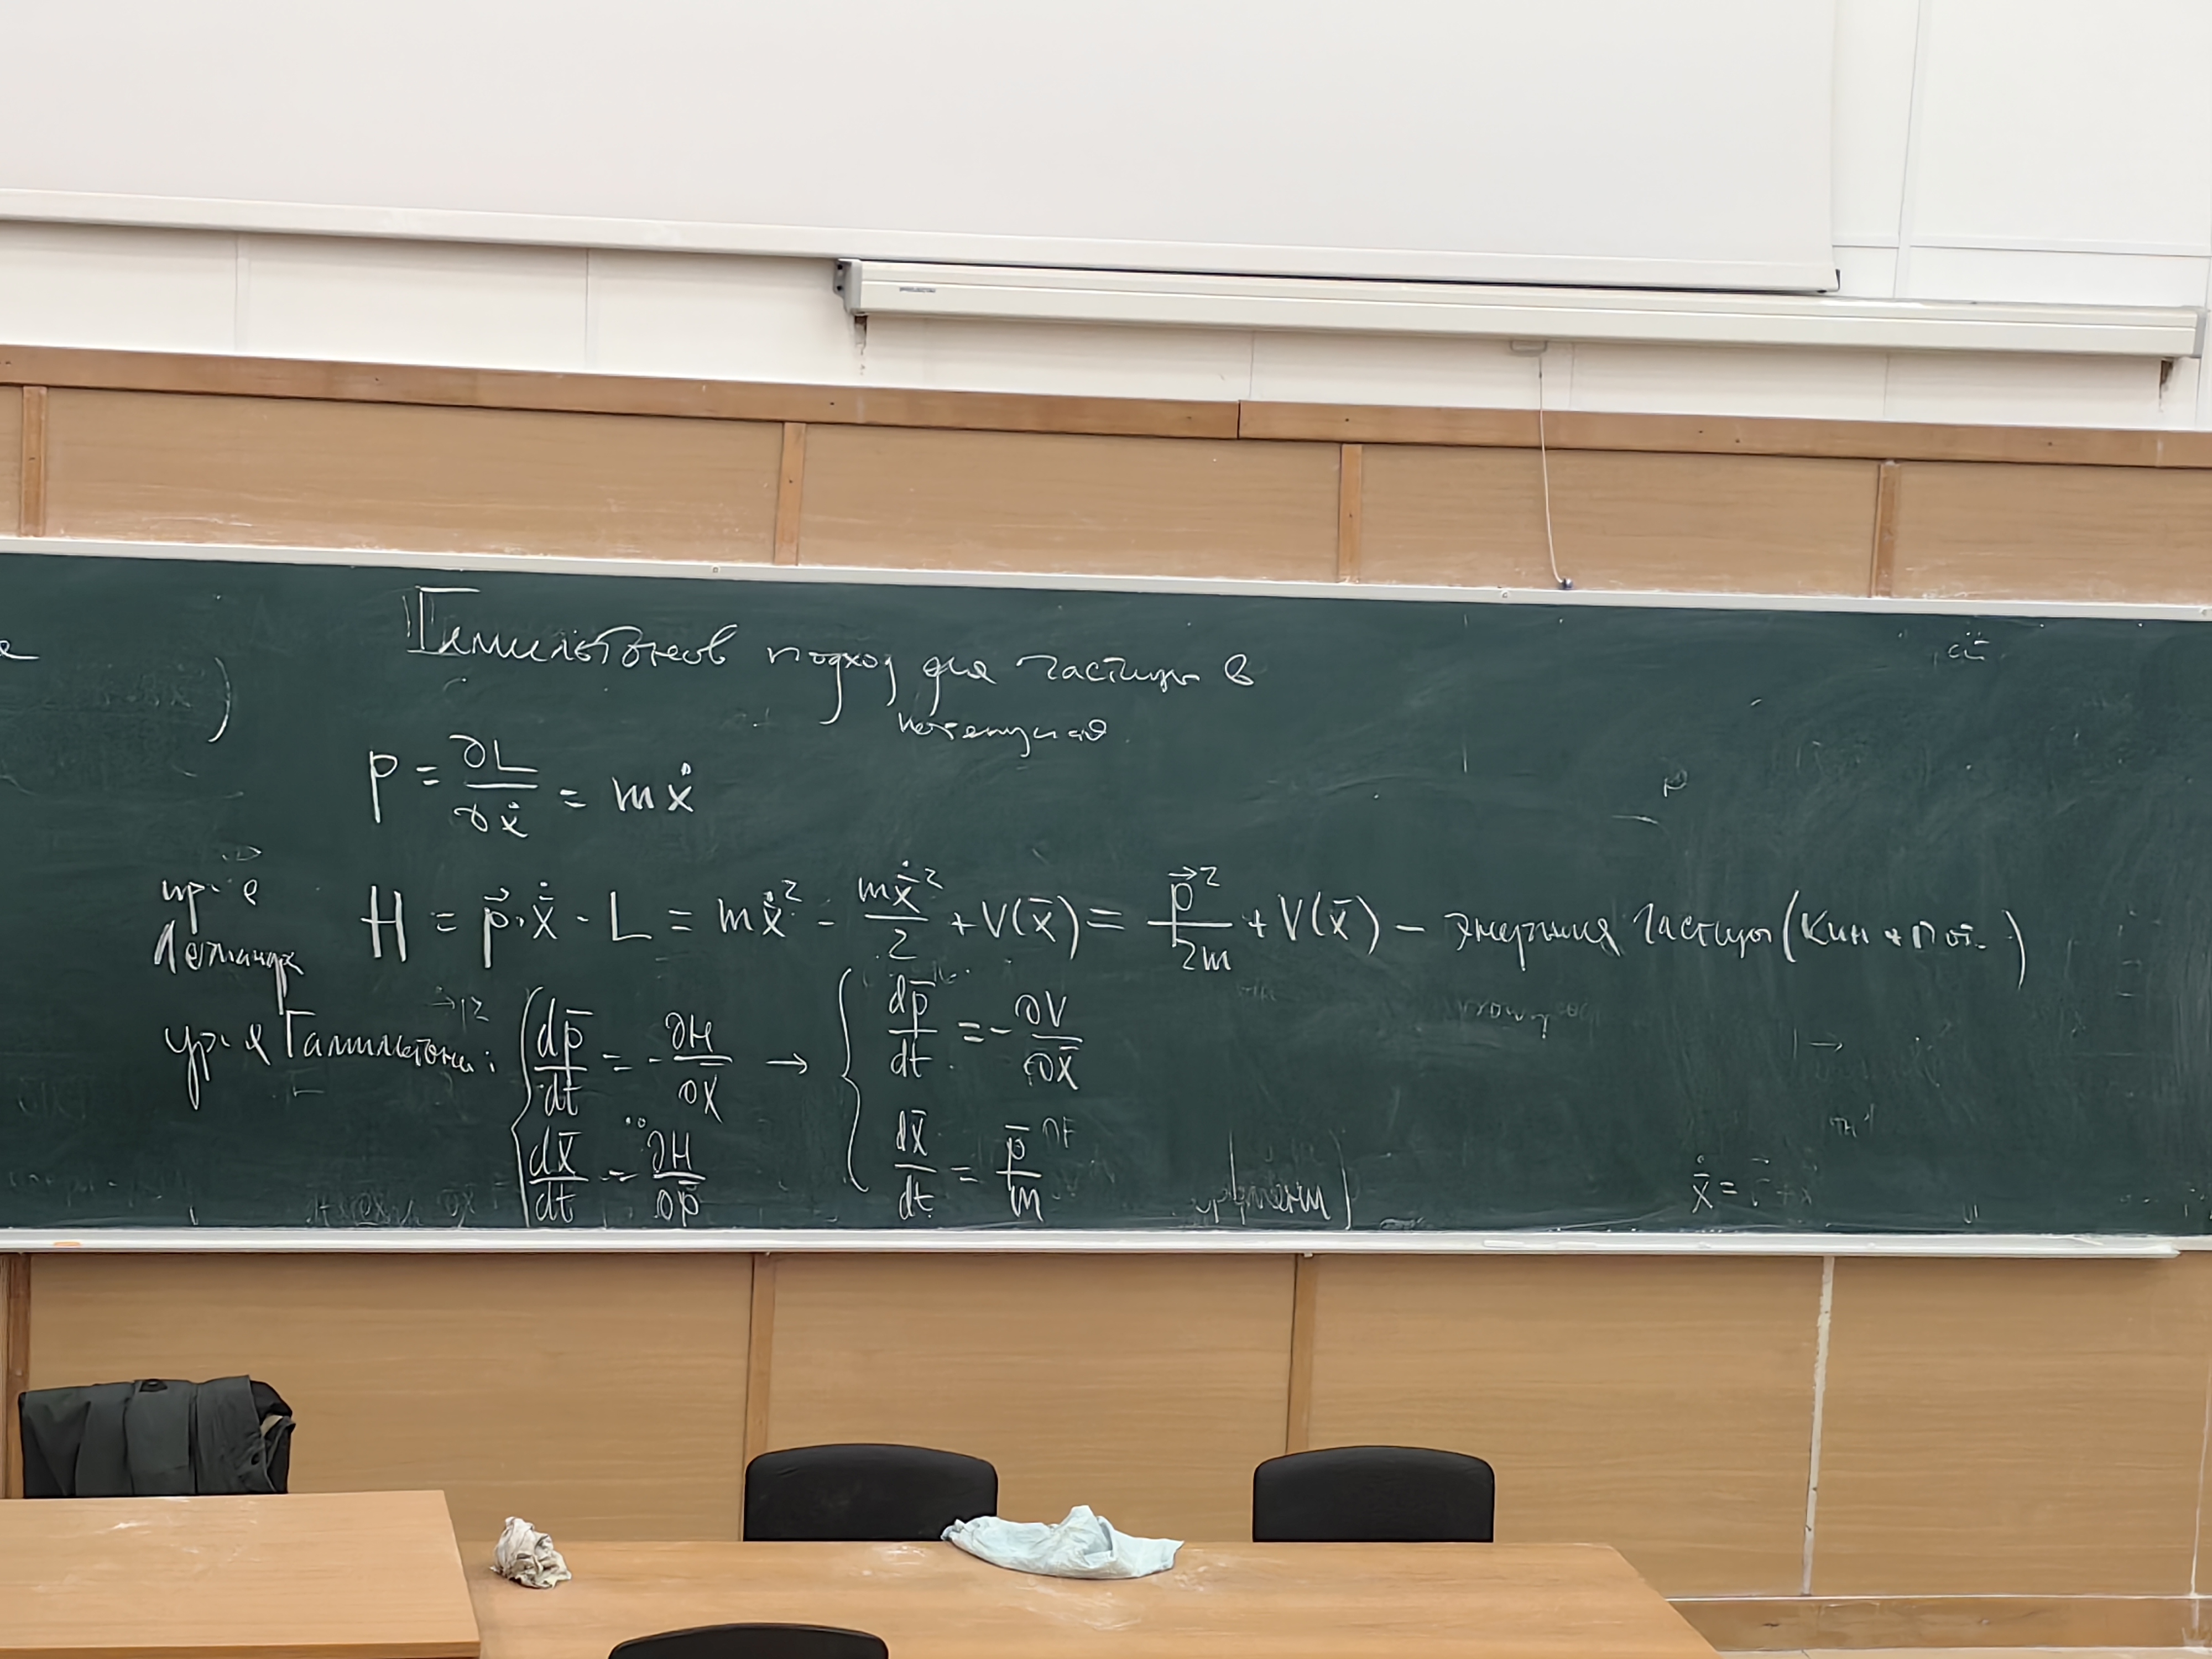 Гамильтонов подход для частицы в
потенциале
p = ∂L/∂ẋ = mẋ
пр-е
Лежандра
H = p⃗·ẋ̄ - L = mẋ² - mẋ²/2 + V(x̄) = p⃗²/2m + V(x̄) - энергия частицы (кин + пот.)
ур-я Гамильтона: { dp̄/dt = -∂H/∂x̄ → { dp̄/dt = -∂V/∂x̄
dx̄/dt = ∂H/∂p̄ dx̄/dt = p̄/m
ẋ̄ =